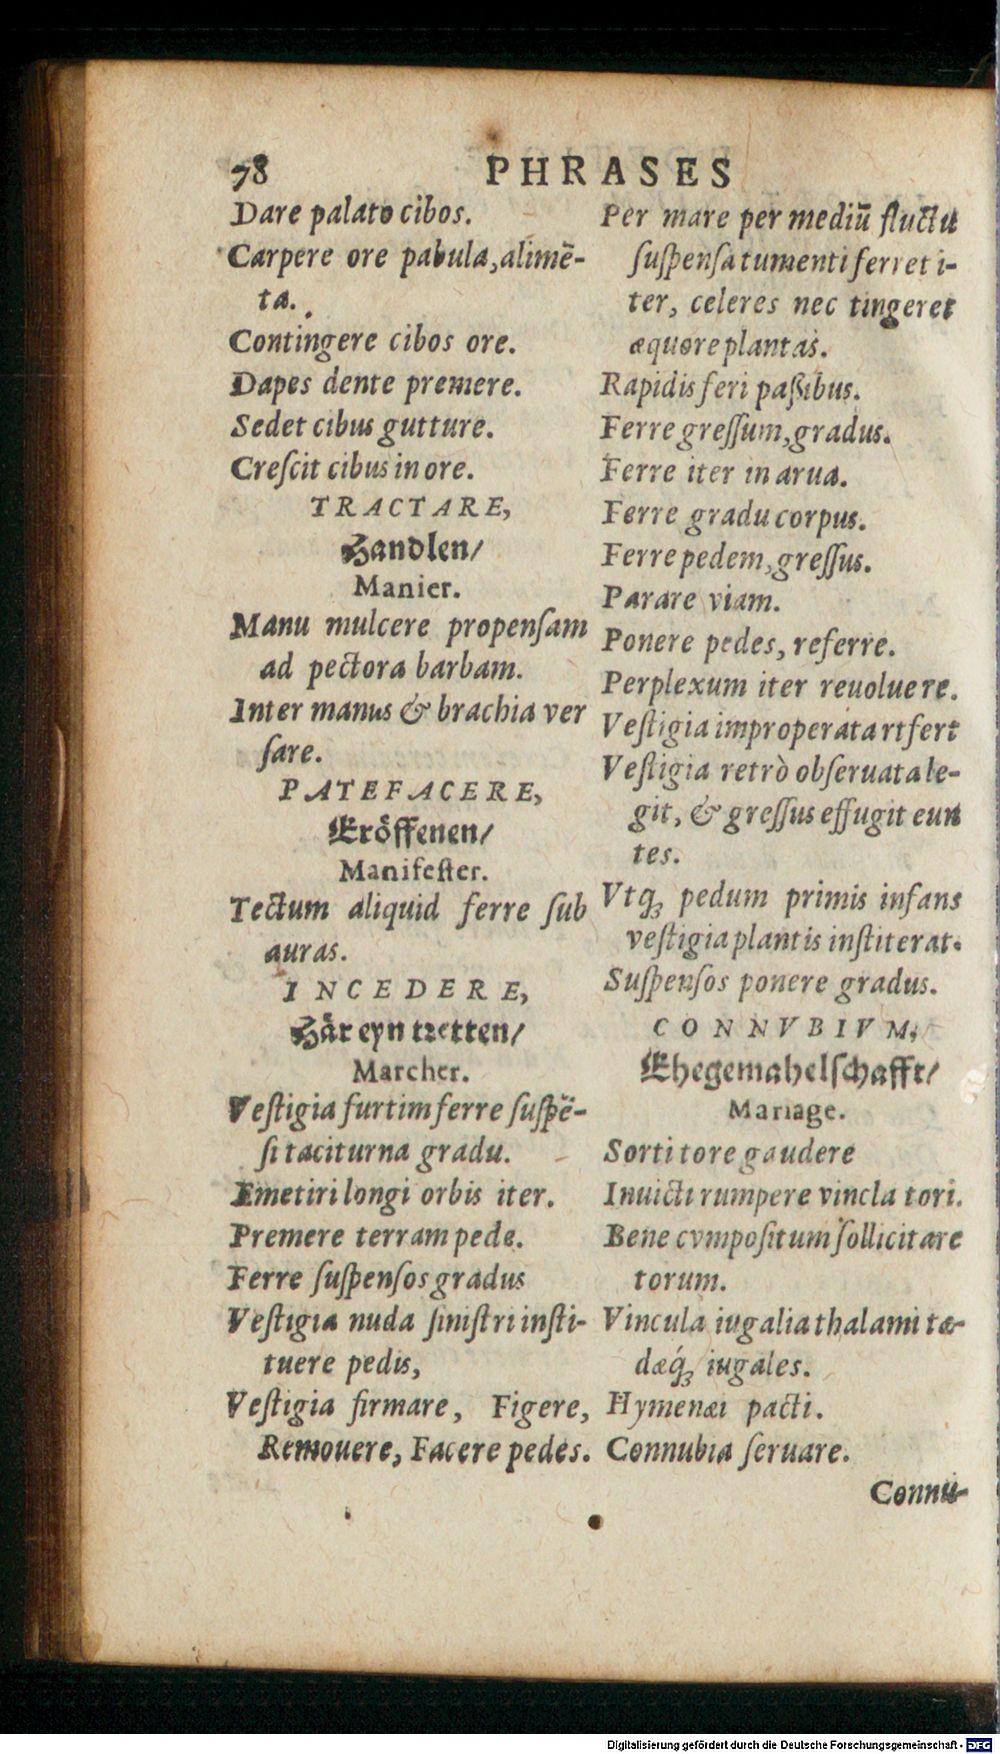 78
PHRASES
Dare palato cibos.
Carpere ore pabula, alimē-
ta.
Contingere cibos ore.
Dapes dente premere.
Sedet cibus gutture.
Creſcit cibus in ore.
TRACTARE,
Handlen/
Manier.
Manu mulcere propenſam
ad pectora barbam.
Inter manus & brachia ver
ſare.
PATEFACERE,
Eröffenen/
Manifeſter.
Tectum aliquid ferre ſub
auras.
INCEDERE,
Här eyn tretten/
Marcher.
Veſtigia furtim ferre ſuſpē-
ſi taciturna gradu.
Emetiri longi orbis iter.
Premere terram pede.
Ferre ſuſpenſos gradus
Veſtigia nuda ſiniſtri inſti-
tuere pedis,
Veſtigia firmare, Figere,
Remouere, Facere pedes.
Per mare per mediū fluctu
ſuſpenſa tumenti ferret i-
ter, celeres nec tingeret
æquore plantas.
Rapidis feri paſsibus.
Ferre greſſum, gradus.
Ferre iter in arua.
Ferre gradu corpus.
Ferre pedem, greſſus.
Parare viam.
Ponere pedes, referre.
Perplexum iter reuoluere.
Veſtigia improperata rtfert
Veſtigia retrò obſeruata le-
git, & greſſus effugit eun
tes.
Vtq; pedum primis infans
veſtigia plantis inſtiterat.
Suſpenſos ponere gradus.
CONNVBIVM,
Ehegemahelſchafft/
Mariage.
Sorti tore gaudere
Inuicti rumpere vincla tori.
Bene cvmpoſitum ſollicitare
torum.
Vincula iugalia thalami tæ-
dæq́; iugales.
Hymenæi pacti.
Connubia ſeruare.
Connu-
Digitalisierung gefördert durch die Deutsche Forschungsgemeinschaft - DFG